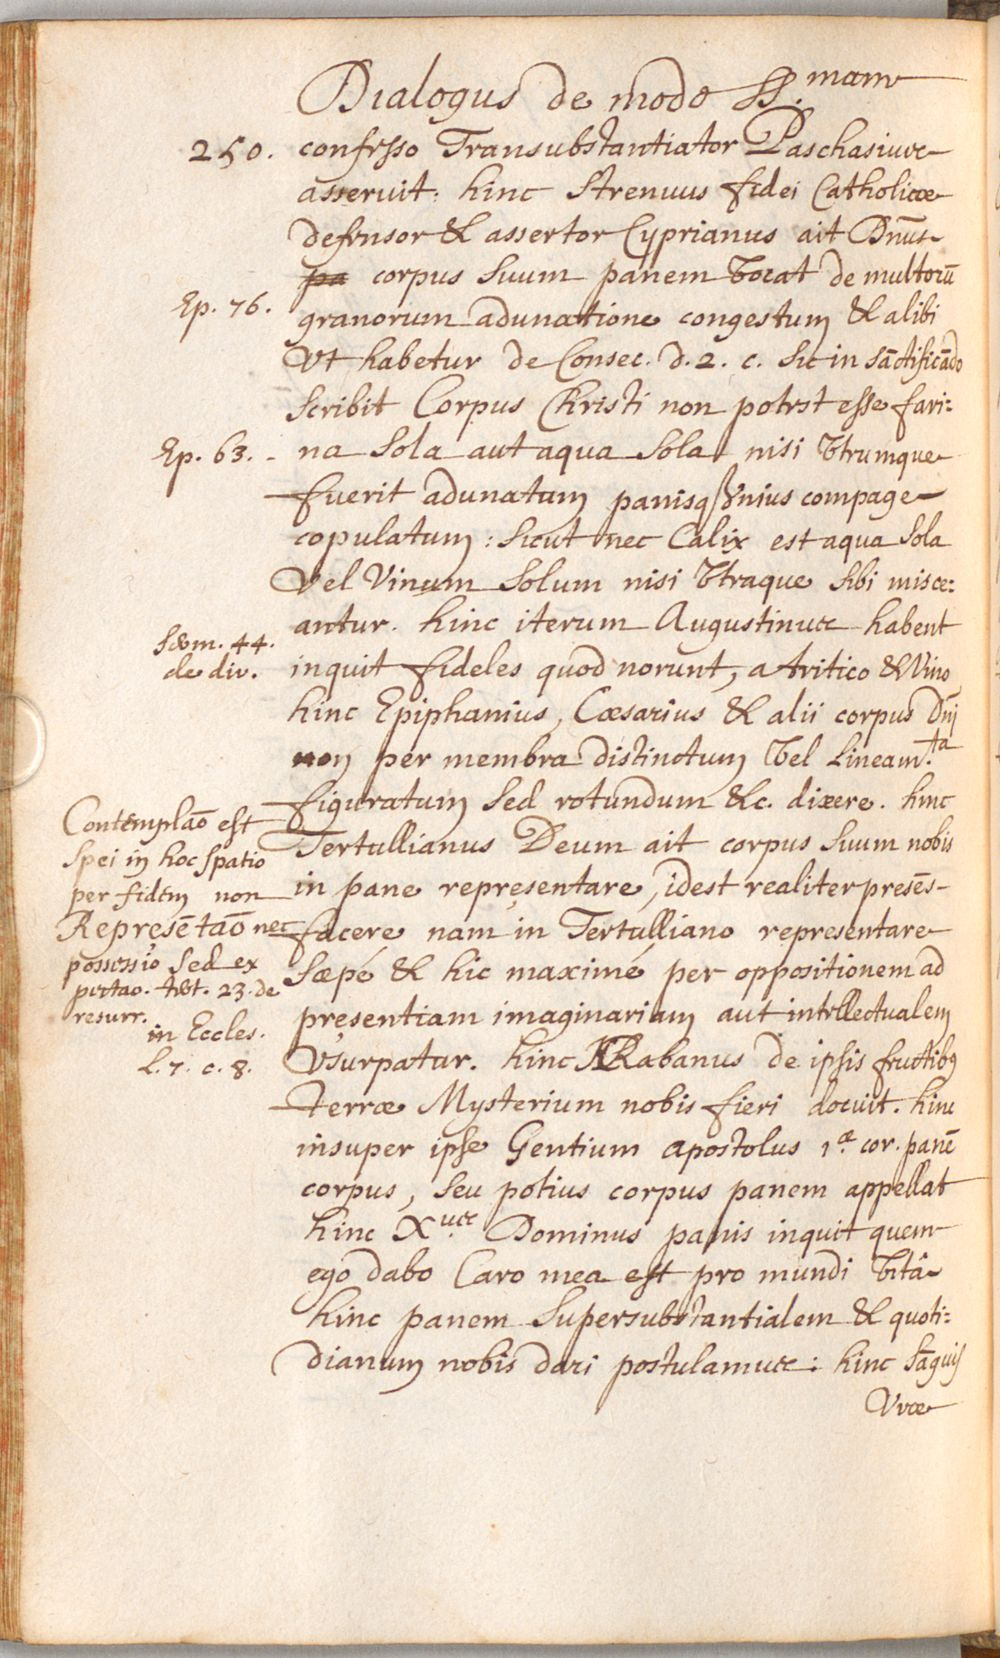 Dialogus de modo SS.mam
250.
confesso Transubstantiator Paschasius
asseruit: hinc strenuus fidei Catholicæ
defensor & assertor Cyprianus ait Dnūs
pa corpus suum panem vocat de multorū
Ep. 76.
granorum adunatione congestum & alibi
Vt habetur de Consec. d. 2. c. sic in sāctificādo
scribit Corpus Christi non potest esse fari=
Ep. 63. -
na sola aut aqua sola nisi vtrumque
fuerit adunatam panisq vnius compage
copulatum: sicut nec Calix est aqua sola
Vel Vinum solum nisi vtraque sibi misce:
antur. hinc iterum Augustinus habent
Serm. 44.
de div.
inquit fideles quod norunt, a tritico & Vino
hinc Epiphanius, Cæsarius & alii corpus Dni
non per membra distinctum vel Lineam.ta
figuratum sed rotundum &c. dixere. hinc
Tertullianus Deum ait corpus suum nobis
in pane representare, idest realiter presēs-
facere nam in Tertulliano representare
sæpé & hic maximé per oppositionem ad
presentiam imaginariam aut intellectualem
Contemplaō est
spei in hoc spatio
per fidem non
Represētaō nec
possessio sed ex
pectao. tert. 23. de
resurr.
in Eccles.
L. 7. c. 8.
Vsurpatur. hinc Rabanus de ipsis fructibꝫ
terræ Mysterium nobis fieri docuit. hinc
insuper ipse Gentium apostolus 1.a cor. panē
corpus, seu potius corpus panem appellat
hinc X.us Dominus panis inquit quem
ego dabo Caro mea est pro mundi vitâ
hinc panem supersubstantialem & quoti=
dianum nobis dari postulamus: hinc sāguis
Vvæ